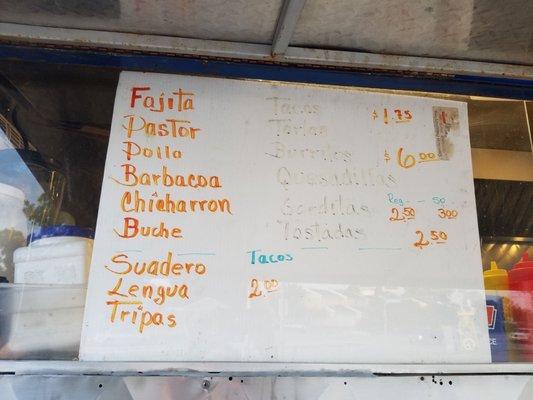 Fajita Tacos $1.75
Pastor Tortas
Pollo Burritos $6.00
Barbacoa Quesadillas
Chicharron Gorditas Reg. 2.50 So. 3.00
Buche Tostadas 2.50
Suadero Tacos
Lengua 2.00
Tripas